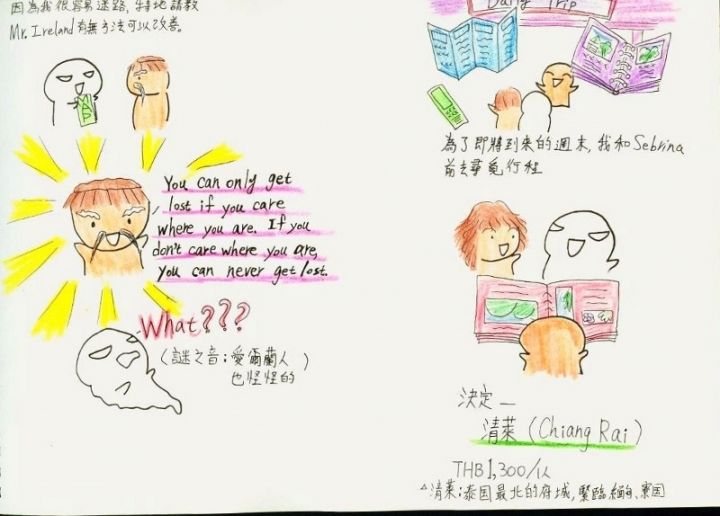 因為我很容易迷路,特地請教
Mr. Ireland有無方法可以改善。
MAP
You can only get
lost if you care
where you are. If you
don't care where you are,
you can never get lost.
What???
(謎之音:愛爾蘭人
也怪怪的)
Daily Trip
為了即將到來的週末,我和Sebrina
前去尋覓行程
決定—
清萊(Chiang Rai)
THB1,300/人
△清萊:泰国最北的府城,緊臨緬甸、寮国